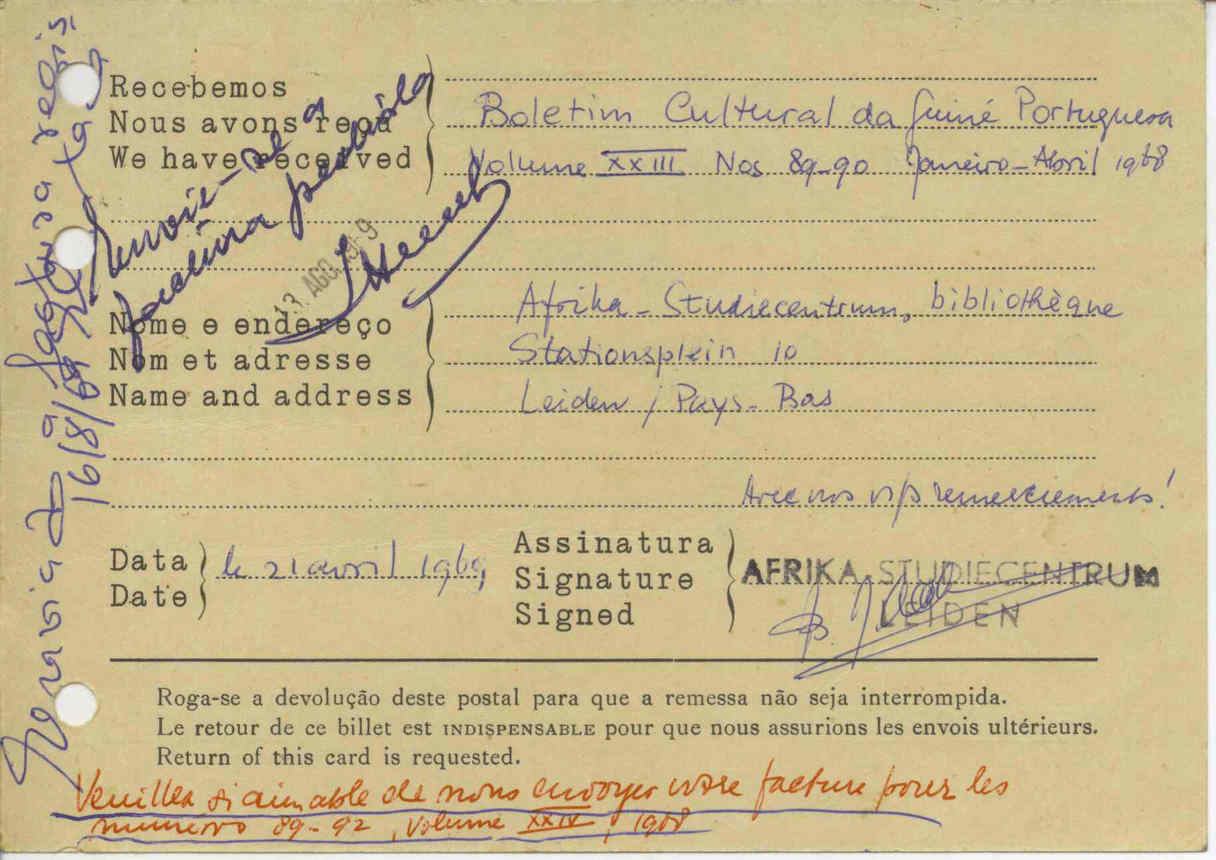 Recebemos
Nous avons reçu
We have received
Boletim Cultural da Guiné Portuguesa
Volume XXIII Nos 89-90 Janeiro-Abril 1968
Envie-se a
factura pedida
13 AGO.
Nome e endereço
Nom et adresse
Name and address
Afrika-Studiecentrum, bibliothèque
Stationsplein 10
Leiden / Pays-Bas
Avec nos vifs remerciements!
Data
Date
le 21 avril 1969
Assinatura
Signature
Signed
AFRIKA STUDIECENTRUM
LEIDEN
Roga-se a devolução deste postal para que a remessa não seja interrompida.
Le retour de ce billet est INDISPENSABLE pour que nous assurions les envois ultérieurs.
Return of this card is requested.
Veuillez si aimable de nous envoyer votre facture pour les
numéros 89-92, Volume XXIV, 1968
Enviada a factura
16/8/69